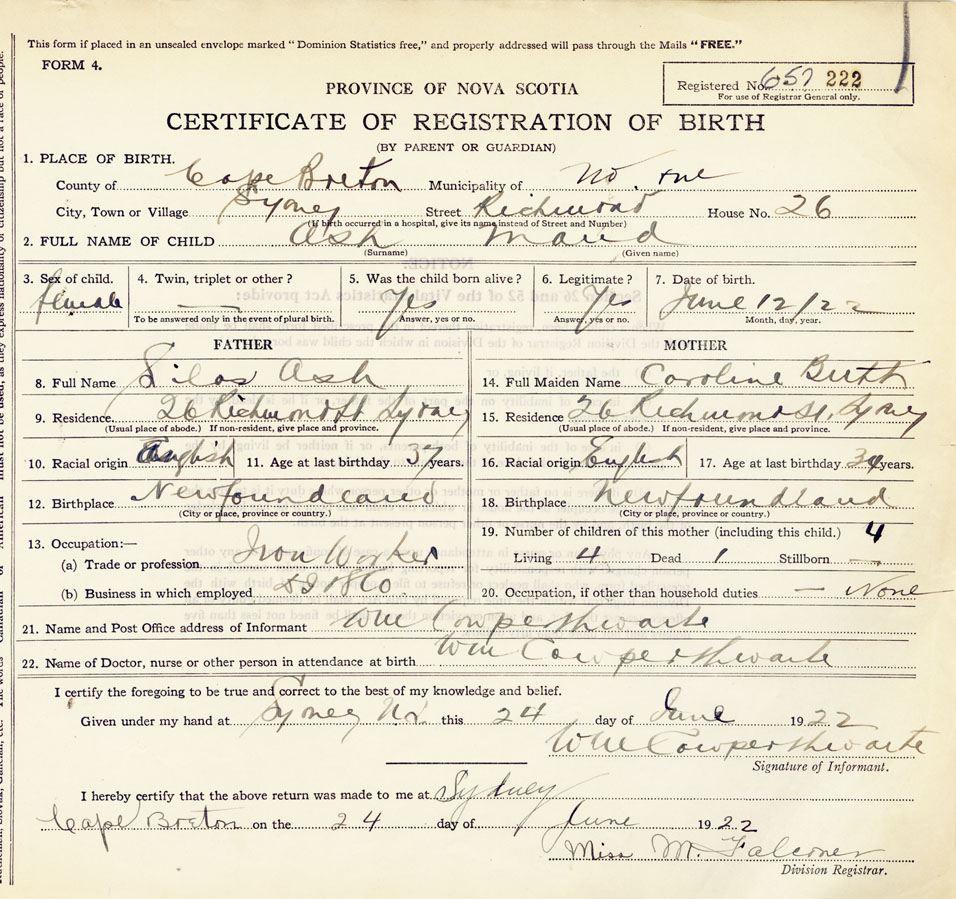 This form if placed in an unsealed envelope marked "Dominion Statistics free," and properly addressed will pass through the Mails "FREE."
FORM 4.
PROVINCE OF NOVA SCOTIA
Registered No. 657 222
For use of Registrar General only.
CERTIFICATE OF REGISTRATION OF BIRTH
(BY PARENT OR GUARDIAN)
1. PLACE OF BIRTH.
County of Cape Breton Municipality of No. one
City, Town or Village Sydney Street Richmond House No. 26
(If birth occurred in a hospital, give its name instead of Street and Number)
2. FULL NAME OF CHILD Ash Maud
(Surname) (Given name)
3. Sex of child. 4. Twin, triplet or other? 5. Was the child born alive? 6. Legitimate? 7. Date of birth.
female — — Yes Yes June 12/22
To be answered only in the event of plural birth. Answer, yes or no. Answer, yes or no. Month, day, year.
FATHER MOTHER
8. Full Name Silas Ash 14. Full Maiden Name Caroline
9. Residence 26 Richmond St Sydney 15. Residence 26 Richmond St. Sydney
(Usual place of abode.) If non-resident, give place and province. (Usual place of abode.) If non-resident, give place and province.
10. Racial origin English 11. Age at last birthday 37 years. 16. Racial origin English 17. Age at last birthday years.
12. Birthplace Newfoundland 18. Birthplace Newfoundland
(City or place, province or country.) (City or place, province or country.)
13. Occupation:— 19. Number of children of this mother (including this child.) 4
(a) Trade or profession Iron Worker Living 4 Dead 1 Stillborn —
(b) Business in which employed 20. Occupation, if other than household duties — None
21. Name and Post Office address of Informant Wm Cowperthwaite
22. Name of Doctor, nurse or other person in attendance at birth Wm Cowperthwaite
I certify the foregoing to be true and correct to the best of my knowledge and belief.
Given under my hand at Sydney N.S. this 24 day of June 1922
Wm Cowperthwaite
Signature of Informant.
I hereby certify that the above return was made to me at Sydney
Cape Breton on the 24 day of June 1922
Miss M. Falconer
Division Registrar.